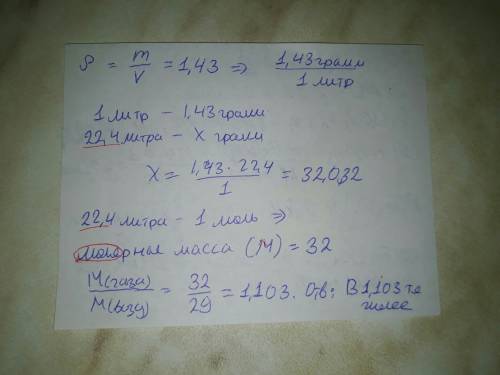 ρ = m/V = 1,43 => 1,43 грамм / 1 литр
1 литр - 1,43 грамм
22,4 литра - X грамм
X = 1,43 · 22,4 / 1 = 32,032
22,4 литра - 1 моль =>
молярные масса (M) = 32
M(газа) / M(возд) = 32 / 29 = 1,103. Отв: В 1,103